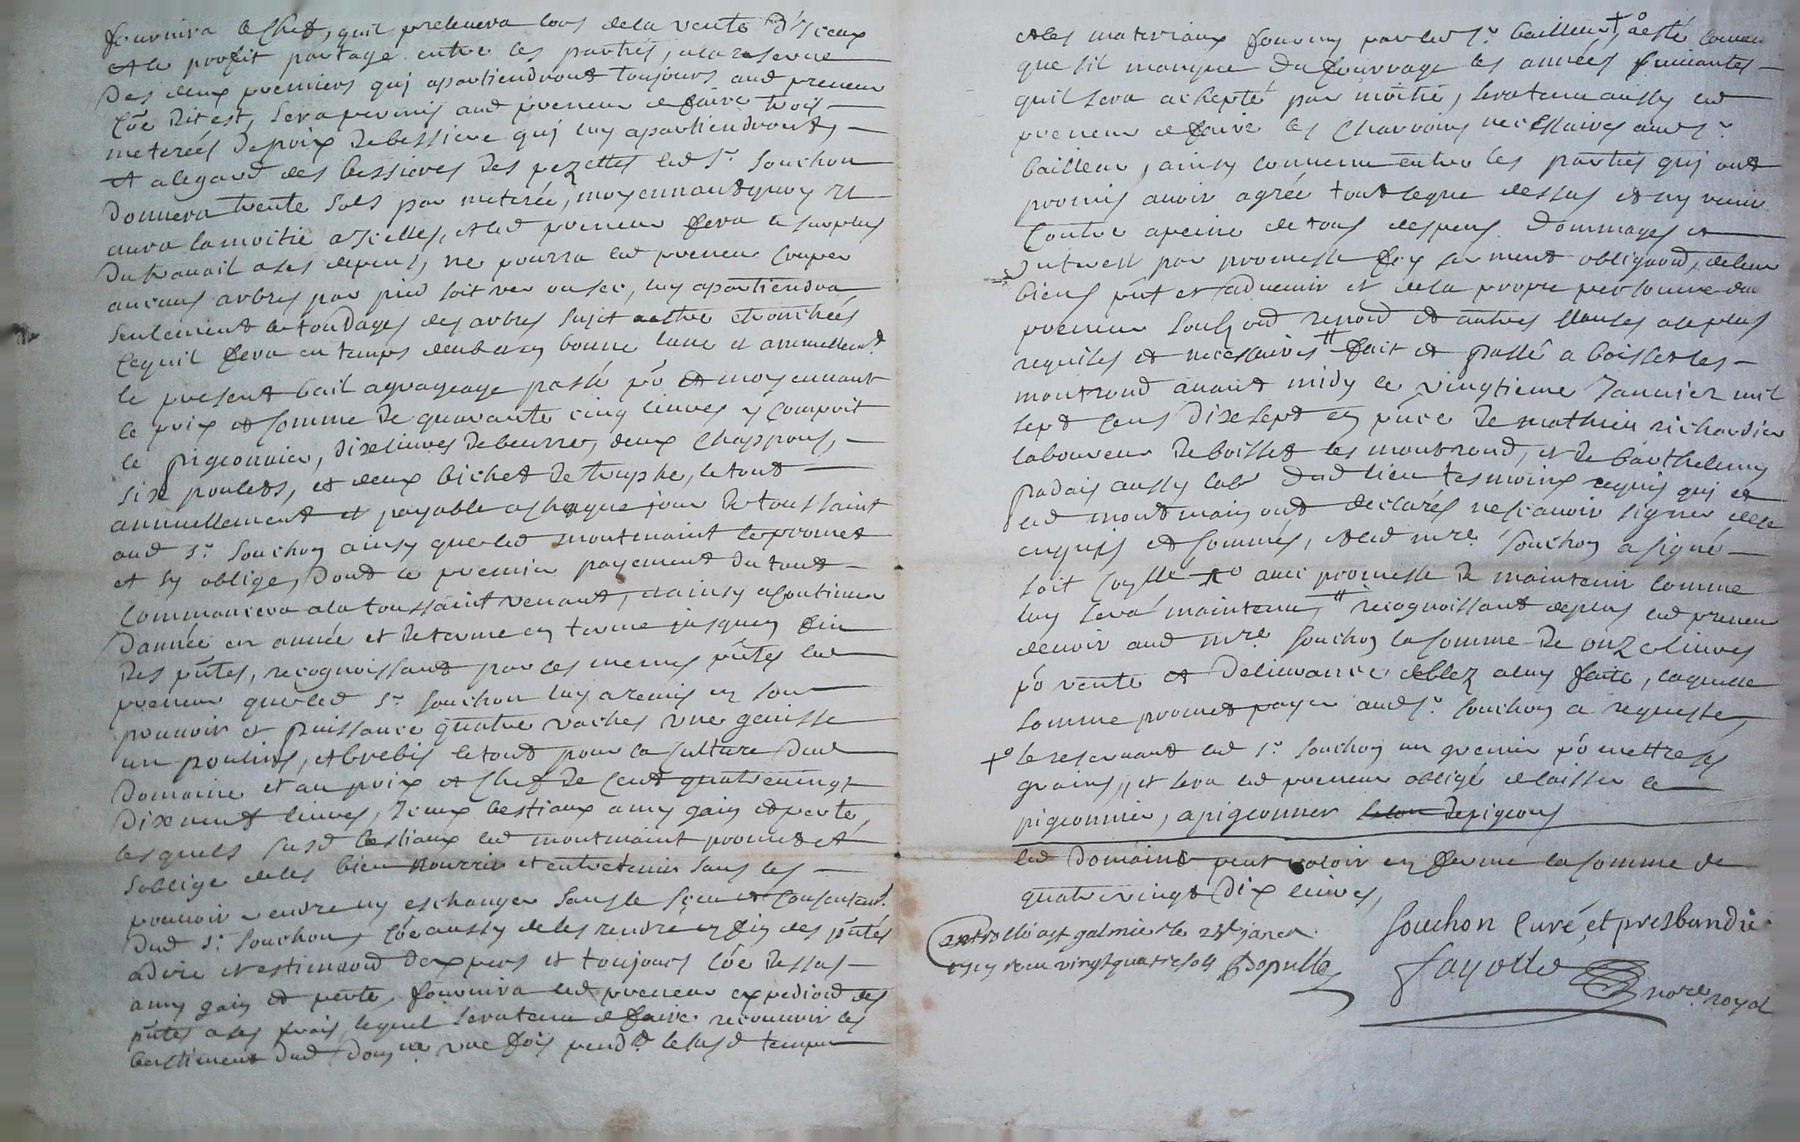 fournira le chef, quil prelevera lors de la vente d'iceux
et le profit partagé entre les parties, a la reserve
des deux premiers qui apartiendront toujours aud preneur
Coe dit est, sera permis aud preneur de faire trois
meterées de poix de bessiere qui luy apartiendront,
et alegard des bessieres des pezettes led Sr Souchon
donnera trente sols par meterée, moyennant quoy il
aura la moitié dicelles, et led preneur fera le surplus
du travail a ses depens, ne pourra led preneur couper
aucuns arbres par pied soit ver ou sec, luy apartiendra
seulement le tondage des arbres sujet a estre etronchés
ce quil fera en temps deub en bonne lune et annuellemt
le present bail a grageage passé po et moyennant
le prix et somme de quarante cinq livres y compris
le pigeonnier, dix livres de beurre, deux chappons,
six poulets, et deux bichet de truphe, le tout
annuellement et payable a chaque jour de toussaint
aud Sr Souchon ainsy que led montmaint le promet
et sy oblige, dont le premier payement du tout
commancera a la toussaint venant, et ainsy a continuer
dannée en année et de terme en terme jusques fin
des pntes, recognoissant par ces memes pntes led
preneur que led Sr Souchon luy a remis en son
pouvoir et puissance quatre vaches une genisse
un poulins, et brebis le tout pour la culture dud
domaine et au prix et chef de cent quatre vingt
dix neuf livres, iceux bestiaux a my gain et perte,
lesquels susd bestiaux led montmaint promet et
soblige de les bien nourrir et entretenir sans les
pouvoir vendre ny eschanger sans le sceu et consentemt
dud Sr Souchon, Coe aussy de les rendre en fin des pntes
a dire et estimaon dexpers et toujours Coe dessus
a my gain et perte, fournira led preneur expediaon des
pntes a ses frais lequel sera tenu de faire recouvrir les
bastiment dud domne une fois pendt le susd temps
et les materiaux fournis par led Sr bailleur, +o a esté convenu
que sil manque du fourrage les années suivantes
quil sera achepté par moitié, sera tenu aussy led
preneur de faire les charrois necessaires aud Sr
bailleur, ainsy convenu entre les parties qui ont
promis avoir agrée tout ceque dessus et ny venir
contre a peine de tous despens dommages et
interest par promesse foy serment obligaon, de leurs
biens pnt et advenir et de la propre personne du
preneur soubz renon et autres clauses a ce plus
requises et necessaires // fait et passé a boisset les
montrond avant midy le vingtieme Janvier mil
sept cens dix sept en pnce de mathieu richardier
laboureur de boisset les montrond, et de barthelemy
padais aussy labr dud lieu tesmoins requis qui et
led montmain ont declarés ne scavoir signer de ce
enquis et sommés, et led mre Souchon a signé
soit coppie No avec promesse de maintenir comme
luy sera maintenu, // recognoissant deplus led preneur
devoir aud mre Souchon la somme de onze livres
po vente et delivrance de blez a luy faite, laquelle
somme promet payer aud Sr Souchon a requeste,
+o se reservant led Sr Souchon un grenier po mettre ses
grains, et sera led preneur obligé de laisser le
pigeonnier, apigeonner de pigeons
led domaine peut valoir en ferme la somme de
quatre vingt dix livres,
Souchon Curé, et presbandié
Controllé a st galmier le 28e janer
reçu vingt quatre sols
Fayolle
nore royal